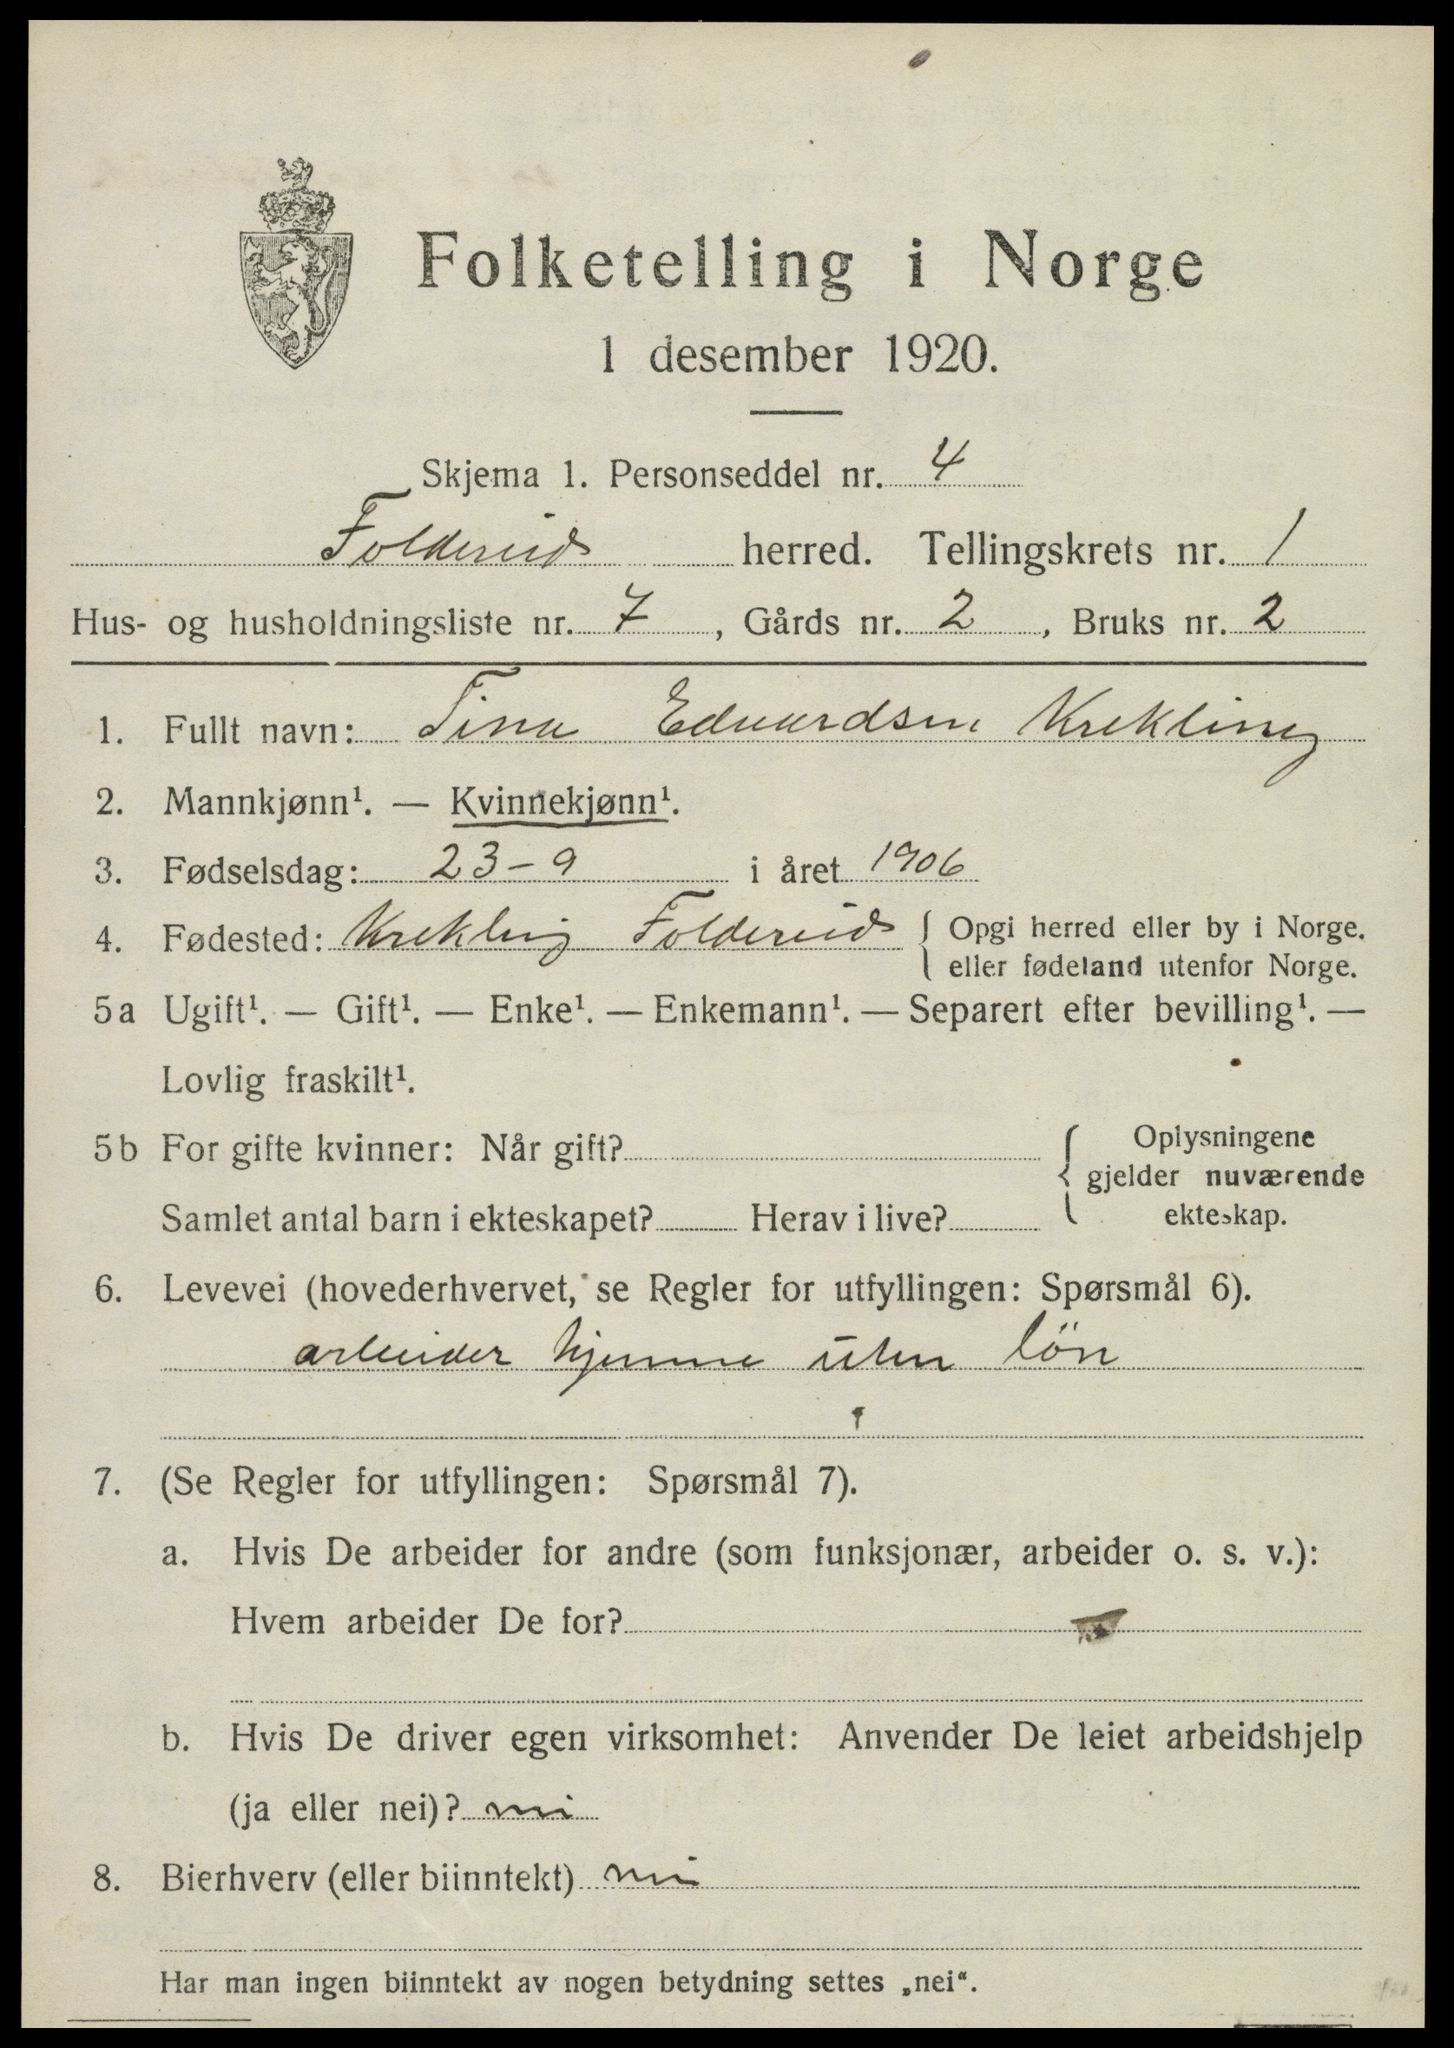 Folketelling i Norge
1 desember 1920.
Skjema 1. Personseddel nr. 4
Foldereid herred. Tellingskrets nr. 1
Hus- og husholdningsliste nr. 7, Gårds nr. 2, Bruks nr. 2
1. Fullt navn: Tina Edvardsen Krekling
2. Mannkjønn¹. — Kvinnekjønn¹.
3. Fødselsdag: 23-9 i året 1906
4. Fødested: Krekling Foldereid { Opgi herred eller by i Norge.
eller fødeland utenfor Norge.
5a Ugift¹. — Gift¹. — Enke¹. — Enkemann¹. — Separert efter bevilling¹. —
Lovlig fraskilt¹.
5b For gifte kvinner: Når gift? { Oplysningene
gjelder nuværende
Samlet antal barn i ekteskapet? Herav i live? ekteskap.
6. Levevei (hovederhvervet, se Regler for utfyllingen: Spørsmål 6).
arbeider hjemme uten lön
7. (Se Regler for utfyllingen: Spørsmål 7).
a. Hvis De arbeider for andre (som funksjonær, arbeider o. s. v.):
Hvem arbeider De for?
b. Hvis De driver egen virksomhet: Anvender De leiet arbeidshjelp
(ja eller nei)? nei
8. Bierhverv (eller biinntekt) nei
Har man ingen biinntekt av nogen betydning settes „nei“.